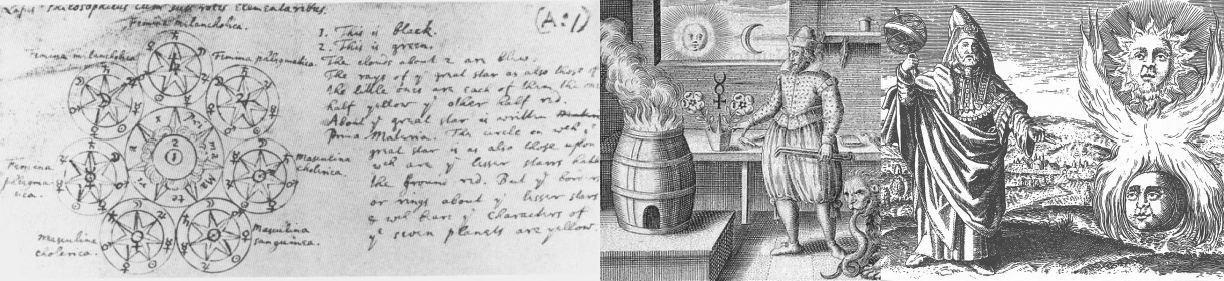 Lapis Philosophicus cum suis rotis Elementaribus.
(A:1)
Femina melancholica.
Femina melancholica
Femina phlegmatica.
Femina
phlegma-
tica.
Masculina
cholerica.
Masculina
cholerica.
Masculina
sanguinea.
2
1
1. This is black.
2. This is green.
The clouds about 2 are blew.
The rays of ye great star as also those of
the little ones are each of them the one
half yellow ye other half red.
About ye great star is written
Prima Materia. The circle on wch ye
great star is as also those upon
wch are ye lesser stars have
the ground red. But ye borders
or rings about ye lesser stars
& wch bare ye characters of
ye seven planets are yellow.